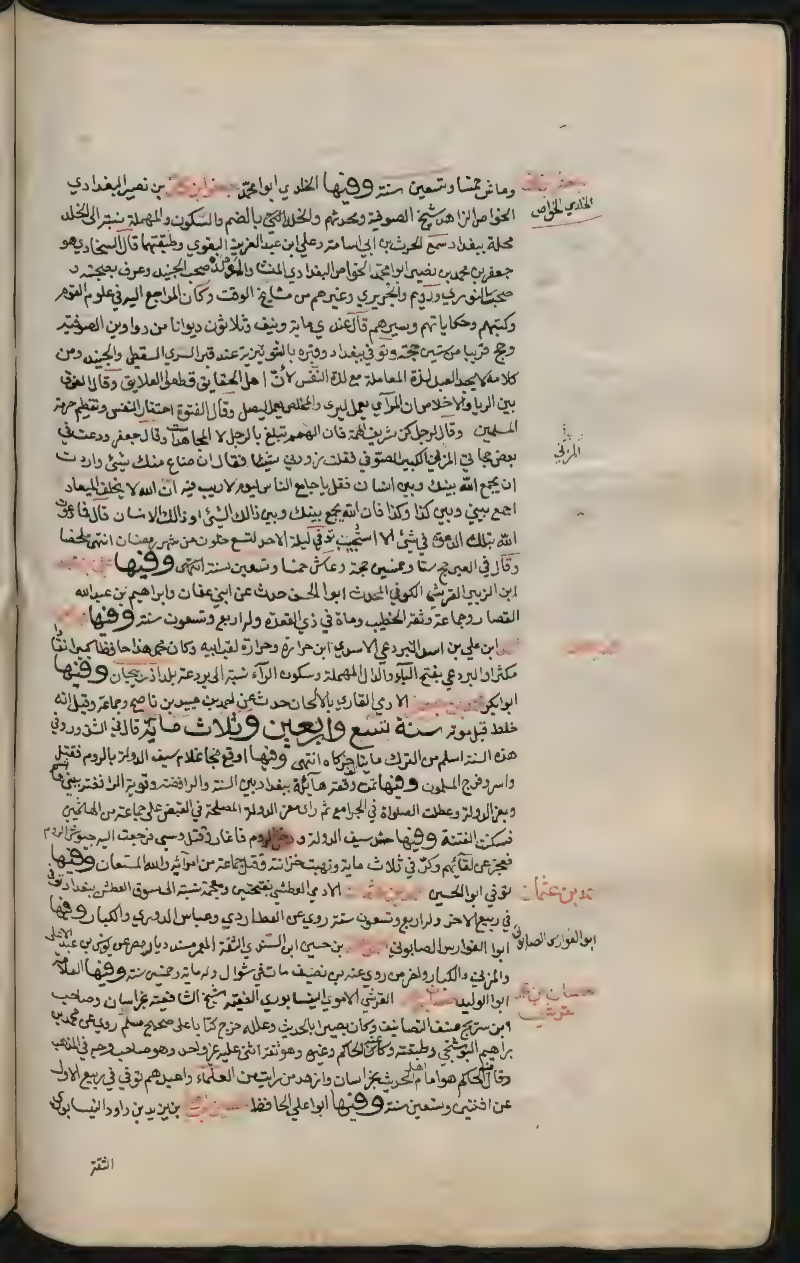 وعاش خمسا وتسعين سنة وفيها الخلدي ابو محمد جعفر ابن محمد بن نصير البغدادي
الخواص الزاهد شيخ الصوفية ومحدثهم والخلدي بالضم والسكون والمهملة نسبة الى الخلد
محلة ببغداد سمع الحرث بن ابي اسامة وعلي ابن عبد العزيز البغوي وطبقتهما قال السخاوي هو
جعفر بن محمد بن نصير ابو محمد الخواص البغدادي المنشا والمولد صحب الجنيد وعرف بصحبته و
صحب النوري ورويم والجريري وغيرهم من مشايخ الوقت وكان المرجع اليه في علوم القوم
وكتبهم وحكاياتهم وسيرهم قال عندي ماية ونيف وثلاثون ديوانا من دواوين الصوفية
وحج قريبا من ستين حجة وتوفي ببغداد وقبره بالشونيزية عند قبر السري السقطي والجنيد ومن
كلامه لا يجد العبد لذة المعاملة مع لذة النفس لان اهل الحقايق قطعوا العلايق وقال الفرق
بين الريا والاخلاص ان المرآي يعمل ليرى والمخلص يعمل ليصل وقال الفتوة احتقار النفس وتعظيم حرمة
المسلمين وقال لرجل كن شريف الهمة فان الهمم تبلغ بالرجل لا المجاهدات وقال جعفر ودعت في
بعض حجاتي المزين الكبير الصوفي فقلت زودني شيئا فقال ان ضاع منك شيئ واردت
ان يجمع الله بينك وبين انسان فقل يا جامع الناس ليوم لا ريب فيه ان الله لا يخلف الميعاد
اجمع بيني وبين كذا وكذا فان الله يجمع بينك وبين ذالك الشيئ او ذالك الانسان قال فما دعوت
الله بتلك الدعوة في شيئ الا استجيب توفي ليلة الاحد لتسع خلون من شهر رمضان انتهى ملخصا
وقال في العبر حج ستا وخمسين حجة وعاش خمسا وتسعين سنة انتهى وفيها علي بن محمد
ابن الزبير القرشي الكوفي المحدث ابو الحسن حدث عن ابني عفان وابراهيم بن عبد الله
القصار وجماعة وثقه الخطيب ومات في ذي القعدة وله اربع وتسعون سنة وفيها
ابن علي بن اسد البردعي الاسدي ابن حرارة وحرارة لقب ابيه وكان محمد هذا حافظا كبيرا ثقة
مكثرا والبردعي بفتح الباء والدال المهملة وسكون الرآء نسبة الى بردعة بلد باذربيجان وفيها
ابو بكر الادمي القاري بالالحان حدث عن احمد بن عبيد بن ناصح وجماعة وقيل انه
خلط قبل موته سنة تسع واربعين وثلاث ماية قال في الشذور وفي
هذه السنة اسلم من الترك مايتا خركاه انتهى وفيها اوقع نجا غلام سيف الدولة بالروم فقتل
واسر وفرح المسلمون وفيها تمت وقعة هآيلة ببغداد بين السنة والرافضة وقويت الرافضة ببني هاشم
وبمعز الدولة وعطلت الصلواة في الجوامع ثم راى معز الدولة المصلحة في القبض على جماعة من الهاشميين
فسكنت الفتنة وفيها حشد سيف الدولة ودخل الروم فاغار وقتل وسبى فرجعت اليه جيوش الروم
فعجز عن لقائهم وكر في ثلاث ماية ونهبت خزانته وقتل جماعة من امرآيه والله المستعان وفيها
توفي ابو الحسين احمد بن عثمان الادمي العطشي بفتحتين ومعجمة نسبة الى سوق العطش ببغداد توفي
في ربيع الاخر وله اربع وتسعون سنة روى عن العطاردي وعباس الدوري والكبار وفيها
ابو الفوارس الصابوني بن حسين ابن السندي الثقة المعمر مسند ديار مصر عن يونس بن عبد الاعلى
والمزني والكبار واخر من روى عنه بن نضيف مات في شوال وله ماية وخمس سنة وفيها العلامة
ابو الوليد حسان بن محمد القرشي الاموي النيسابوري الفقيه شيخ الشافعية بخراسان وصاحب
ابن سريج صنف التصانيف وكان بصيرا بالحديث وعلله خرج كتابا على صحيح مسلم روى عن محمد بن
ابراهيم البوشنجي وطبقته وعنه الحاكم وغيره وهو ثقة اثنى عليه غير واحد وهو صاحب وجه في المذهب
وقال فيه الحاكم هو امام اهل الحديث بخراسان وازهد من رايت من العلماء واعبدهم توفي في ربيع الاول
عن اثنتين وسبعين سنة وفيها ابو علي الحافظ بن يزيد بن داود النيسابوري
الثقة
جعفر بن محمد
الخلدي الخواص
المزين
احمد بن عثمان
ابو الفوارس الصابوني
حسان بن محمد
القرشي